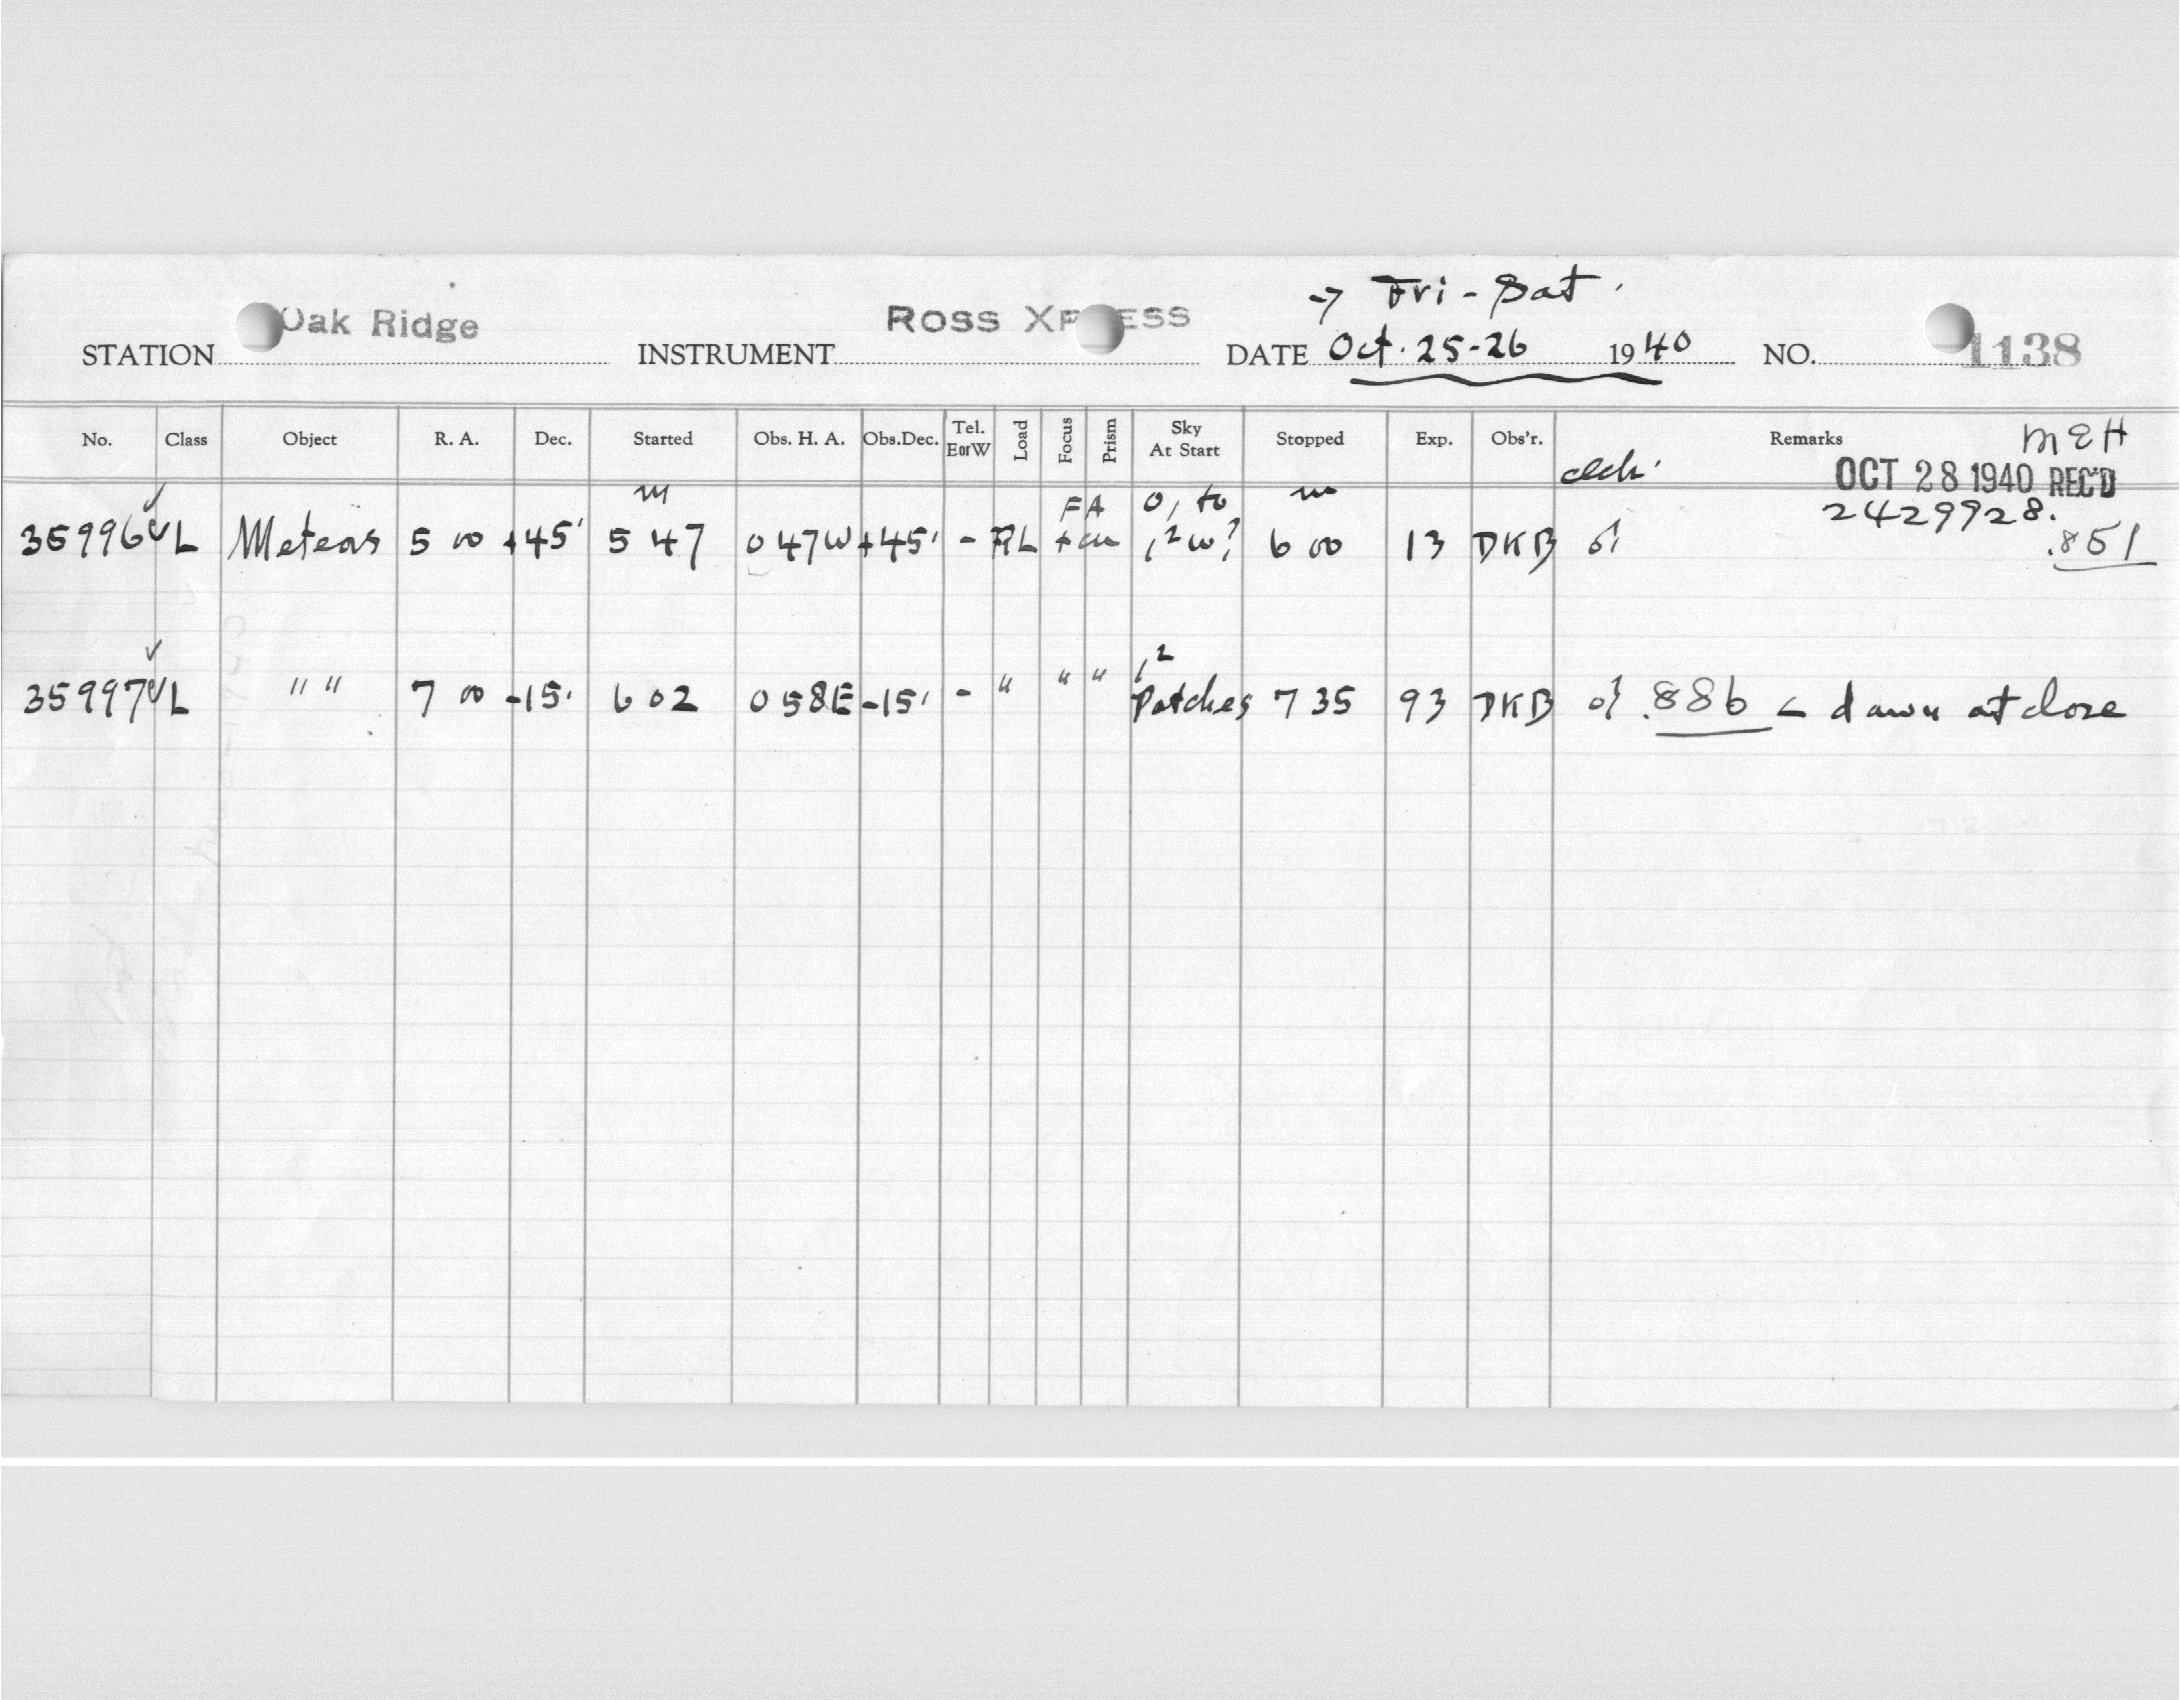 → Fri - Sat.
STATION Oak Ridge INSTRUMENT ROSS XPRESS DATE Oct. 25-26 1940 NO. 1138
No. Class Object R. A. Dec. Started Obs. H. A. Obs.Dec. Tel. E or W Load Focus Prism Sky At Start Stopped Exp. Obs'r. Remarks MEH
OCT 28 1940 REC'D
m FA 0, to m 2429928.
35996 ✓ L Meteors 5 00 +45° 5 47 0 47W +45° - RL ,2 w? 6 00 13 DKB .851
✓ ,2
35997 L " " 7 00 -15° 6 02 0 58E -15° - " " " Patches 7 35 93 DKB .886 < dawn at close